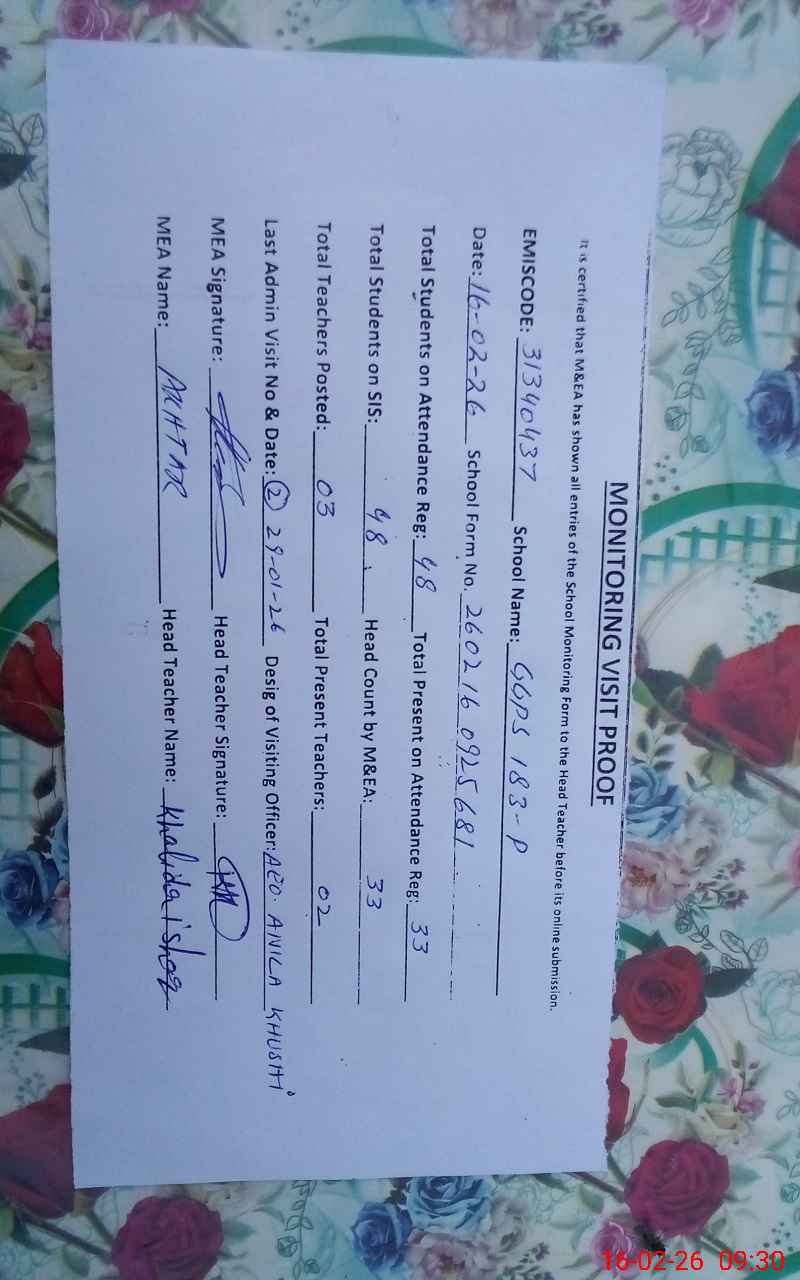 MONITORING VISIT PROOF
It is certified that M&EA has shown all entries of the School Monitoring Form to the Head Teacher before its online submission.
EMISCODE: 31340437 School Name: GGPS 183-P
Date: 16-02-26 School Form No. 260216 0925681
Total Students on Attendance Reg: 48 Total Present on Attendance Reg: 33
Total Students on SIS: 48 Head Count by M&EA: 33
Total Teachers Posted: 03 Total Present Teachers: 02
Last Admin Visit No & Date: (2) 29-01-26 Desig of Visiting Officer: AEO. ANILA KHUSHI
MEA Signature: Head Teacher Signature:
MEA Name: AKHTAR Head Teacher Name: Khalida Ishaq
16-02-26 09:30